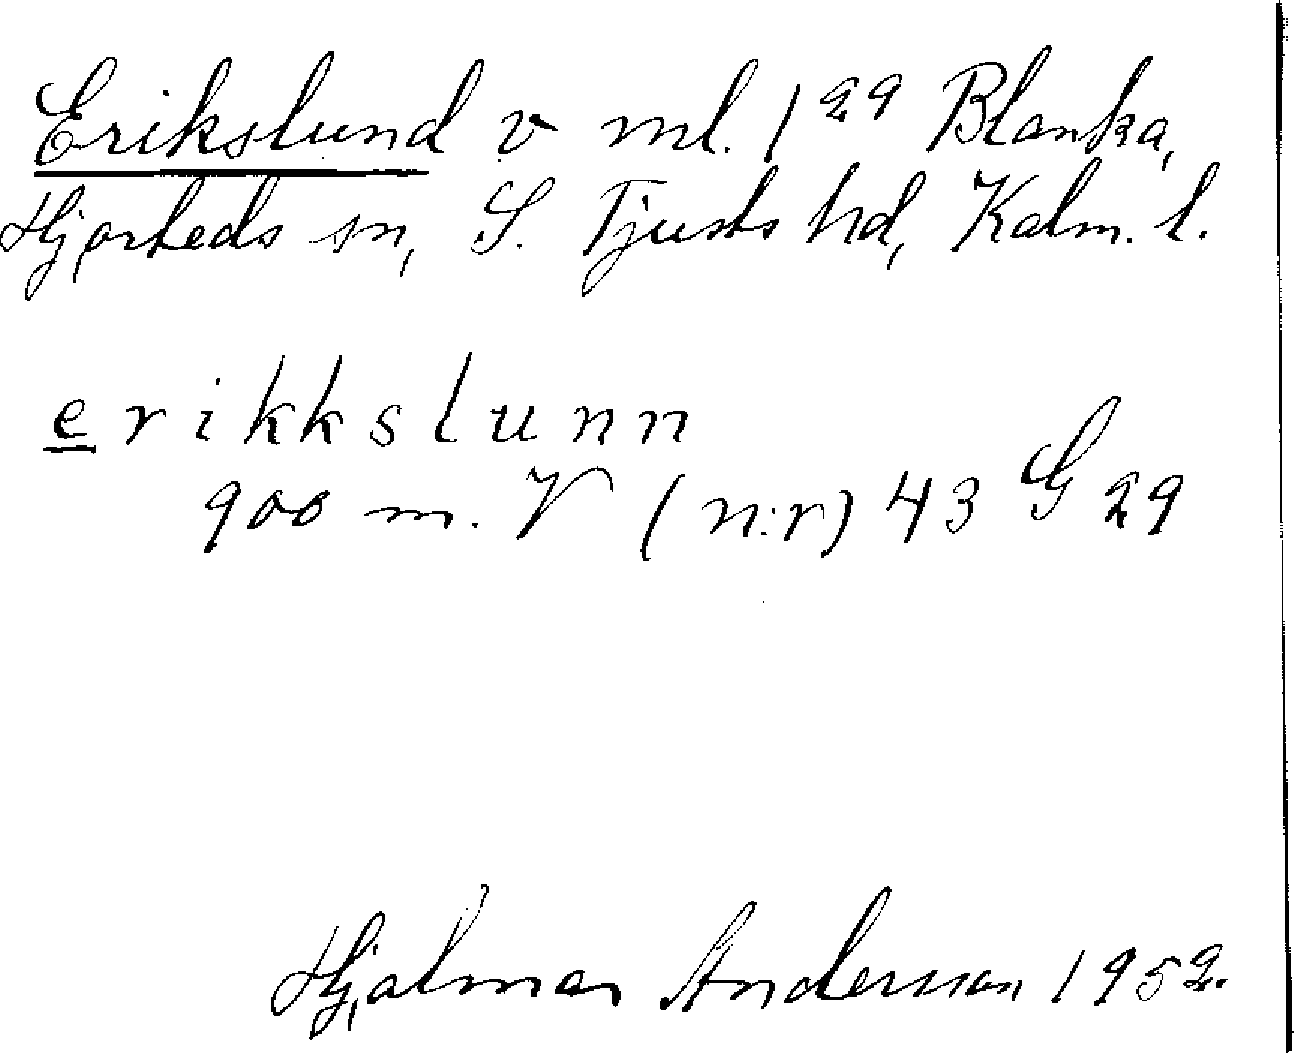 Erikslund v ml. 1²⁹ Blanka,
Hjorteds sn, S. Tjusts hd, Kalm. l.
erikkslunn
900 m. V (n:r) 43 G 29
Hjalmar Andersson 1952.